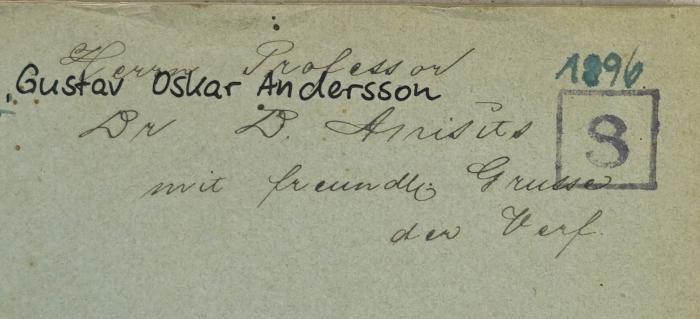 Herrn Professor
1896
Gustav Oskar Andersson
Dr D. Anisits
S
mit freundl. Grusse
der Verf.